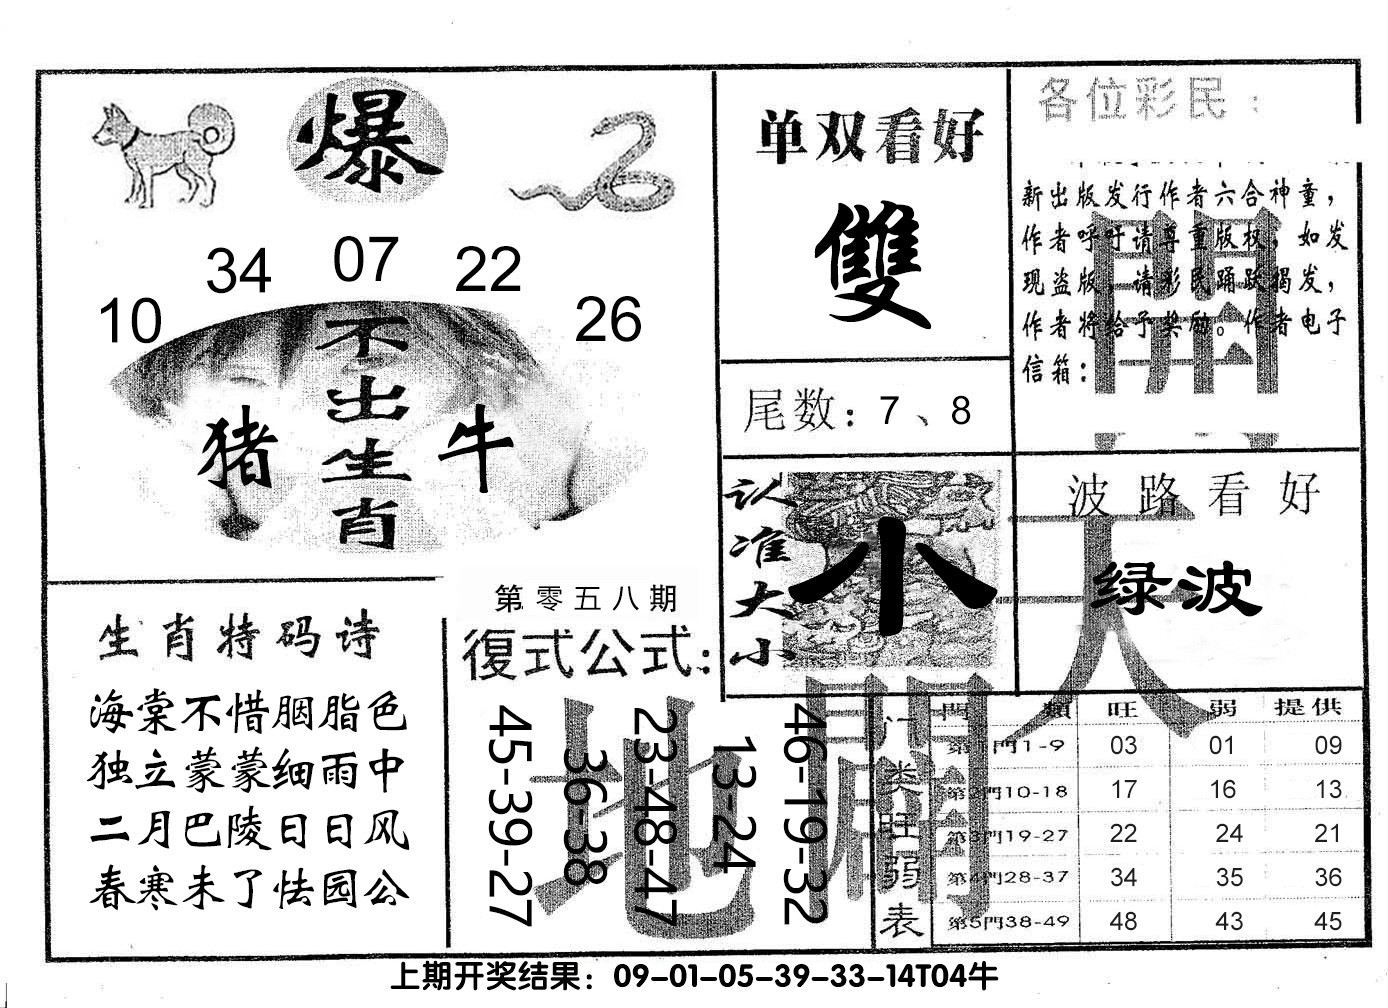 爆
10
34
07
22
26
不出生肖
猪
牛
单双看好
雙
尾数：7、8
各位彩民：
新出版发行作者六合神童，
作者呼吁请尊重版权，如发
现盗版，请彩民踊跃揭发，
作者将给予奖励。作者电子
信箱：
認准大小
小
波路看好
绿波
天
開
地
生肖特码诗
海棠不惜胭脂色
独立蒙蒙细雨中
二月巴陵日日风
春寒未了怯园公
第零五八期
復式公式：
45-39-27
36-38
23-48-47
13-24
46-19-32
门类旺弱表
門 類 旺 弱 提供
第1門1-9 03 01 09
第2門10-18 17 16 13
第3門19-27 22 24 21
第4門28-37 34 35 36
第5門38-49 48 43 45
上期开奖结果：09-01-05-39-33-14T04牛